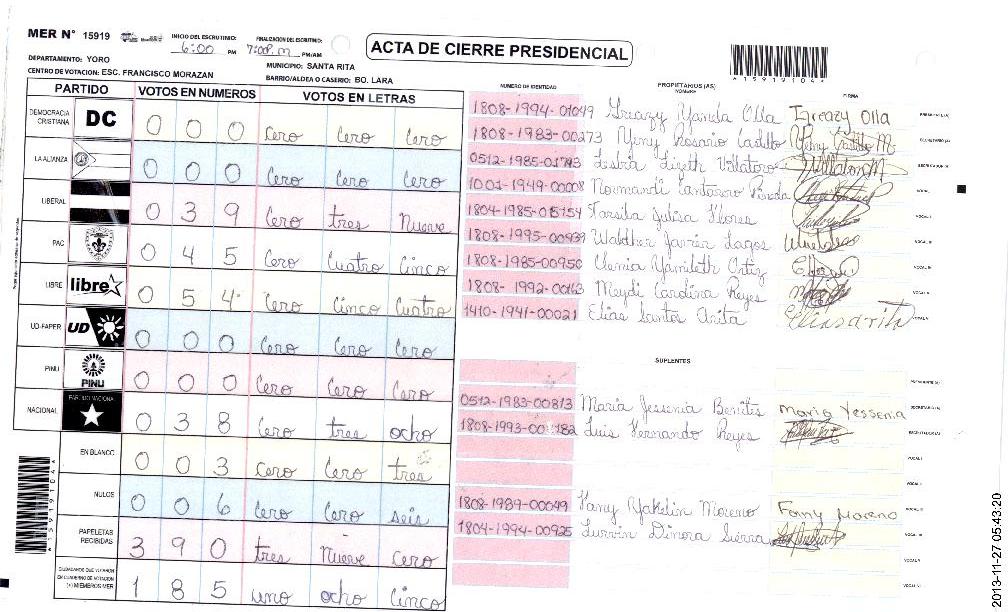 MER N° 15919
INICIO DEL ESCRUTINIO: 6:00 PM
FINALIZACION DEL ESCRUTINIO: 7:00 P.m PM/AM
ACTA DE CIERRE PRESIDENCIAL
A15919104A
DEPARTAMENTO: YORO
MUNICIPIO: SANTA RITA
CENTRO DE VOTACION: ESC. FRANCISCO MORAZAN
BARRIO/ALDEA O CASERIO: BO. LARA
PARTIDO VOTOS EN NUMEROS VOTOS EN LETRAS
DEMOCRACIA CRISTIANA DC 0 0 0 Cero Cero Cero
LA ALIANZA 0 0 0 Cero Cero Cero
LIBERAL 0 3 9 Cero tres Nueve
PAC 0 4 5 Cero Cuatro Cinco
LIBRE libre 0 5 4 Cero Cinco Cuatro
UD-FAPER UD 0 0 0 Cero Cero Cero
PINU PINU 0 0 0 Cero Cero Cero
NACIONAL PARTIDO NACIONAL 0 3 8 Cero tres ocho
EN BLANCO 0 0 3 Cero Cero tres
NULOS 0 0 6 Cero Cero seis
PAPELETAS RECIBIDAS 3 9 0 tres Nueve Cero
CIUDADANOS QUE VOTARON EN CUADERNO DE VOTACION (+) MIEMBROS MER 1 8 5 uno ocho Cinco
A15919104A
NUMERO DE IDENTIDAD PROPIETARIOS (AS) NOMBRE FIRMA
1808-1994-01049 Yanida Olla Olla PRESIDENTE (A)
1808-1983-00273 Yeny Rosario Castillo Yeny Castillo M SECRETARIO (A)
0512-1985-01743 Lizeth Villatoro Villatoro M ESCRUTADOR (A)
1001-1949-00008 Normandi Cantarero Pineda VOCAL I
1804-1985-05154 Tarsila Julisa Flores VOCAL II
1808-1995-00939 Walther Javier Lagos VOCAL III
1808-1985-00950 Yamileth Ortiz VOCAL IV
1808-1992-00163 Meydi Carolina Reyes
1410-1941-00021 Elias Santos Anita
SUPLENTES
PRESIDENTE (A)
0512-1983-00813 Maria Jessenia Benites Maria Yessenia SECRETARIO (A)
1808-1993-00 182 Luis Fernando Reyes ESCRUTADOR (A)
VOCAL I
VOCAL II
1808-1989-00049 Fany Yakelin Moreno Fanny Moreno
1804-1994-00925 Dinora Sierra
VOCAL V
VOCAL VI
2013-11-27 05:43:20